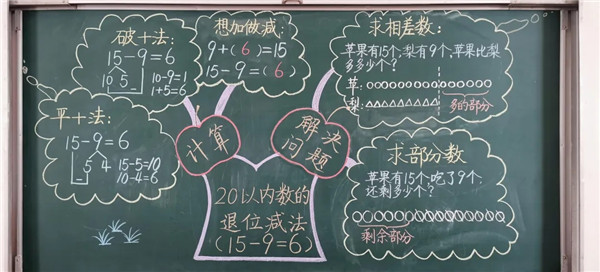 破十法:
15-9=6
10 5
10-9=1
1+5=6
想加做减:
9+(6)=15
15-9=(6)
平十法:
15-9=6
5 4
15-5=10
10-4=6
计算
解决
问题
20以内数的
退位减法
(15-9=6)
求相差数:
苹果有15个,梨有9个,苹果比梨
多多少个?
苹:
梨:
多的部分
求部分数
苹果有15个,吃了9个,
还剩多少个?
剩余部分